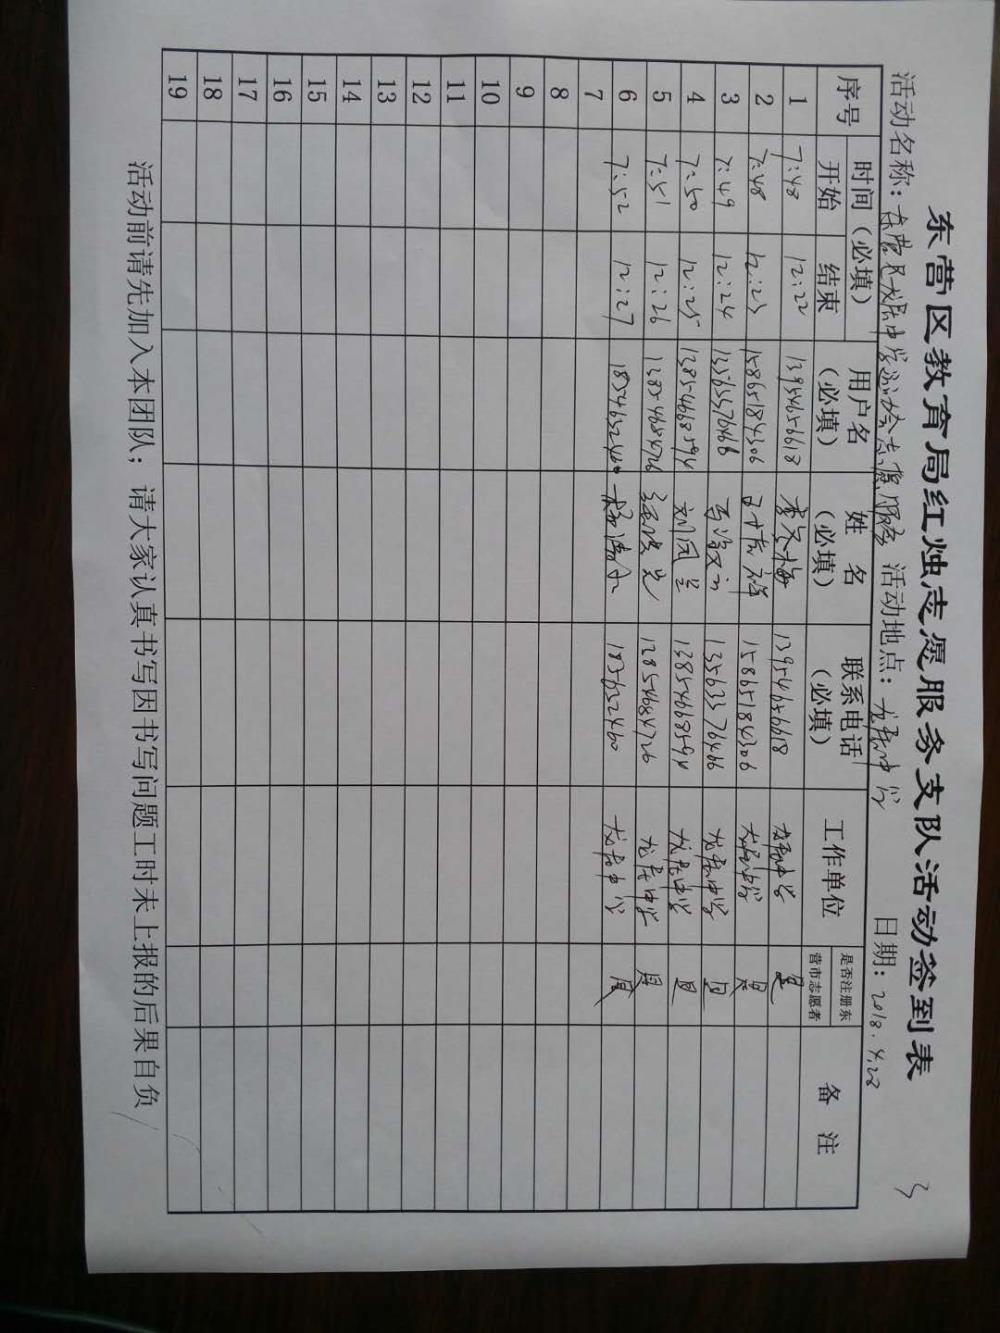 东营区教育局红烛志愿服务支队活动签到表
3
活动名称： 活动地点：龙居中学 日期：2018.4.28
序号 时间（必填） 用户名（必填） 姓 名（必填） 联系电话（必填） 工作单位 是否注册东营市志愿者 备 注
开始 结束
1 7:48 12:22 13954656618 李冬梅 13954656618 龙居中学 是
2 7:48 12:23 15865184306 15865184306 龙居中学 是
3 7:49 12:24 13563576466 13563576466 龙居中学 是
4 7:50 12:25 13854668594 刘凤兰 13854668594 龙居中学 是
5 7:51 12:26 13854684726 13854684726 龙居中学 是
6 7:52 12:27 龙居中学 是
7
8
9
10
11
12
13
14
15
16
17
18
19
活动前请先加入本团队；请大家认真书写因书写问题工时未上报的后果自负